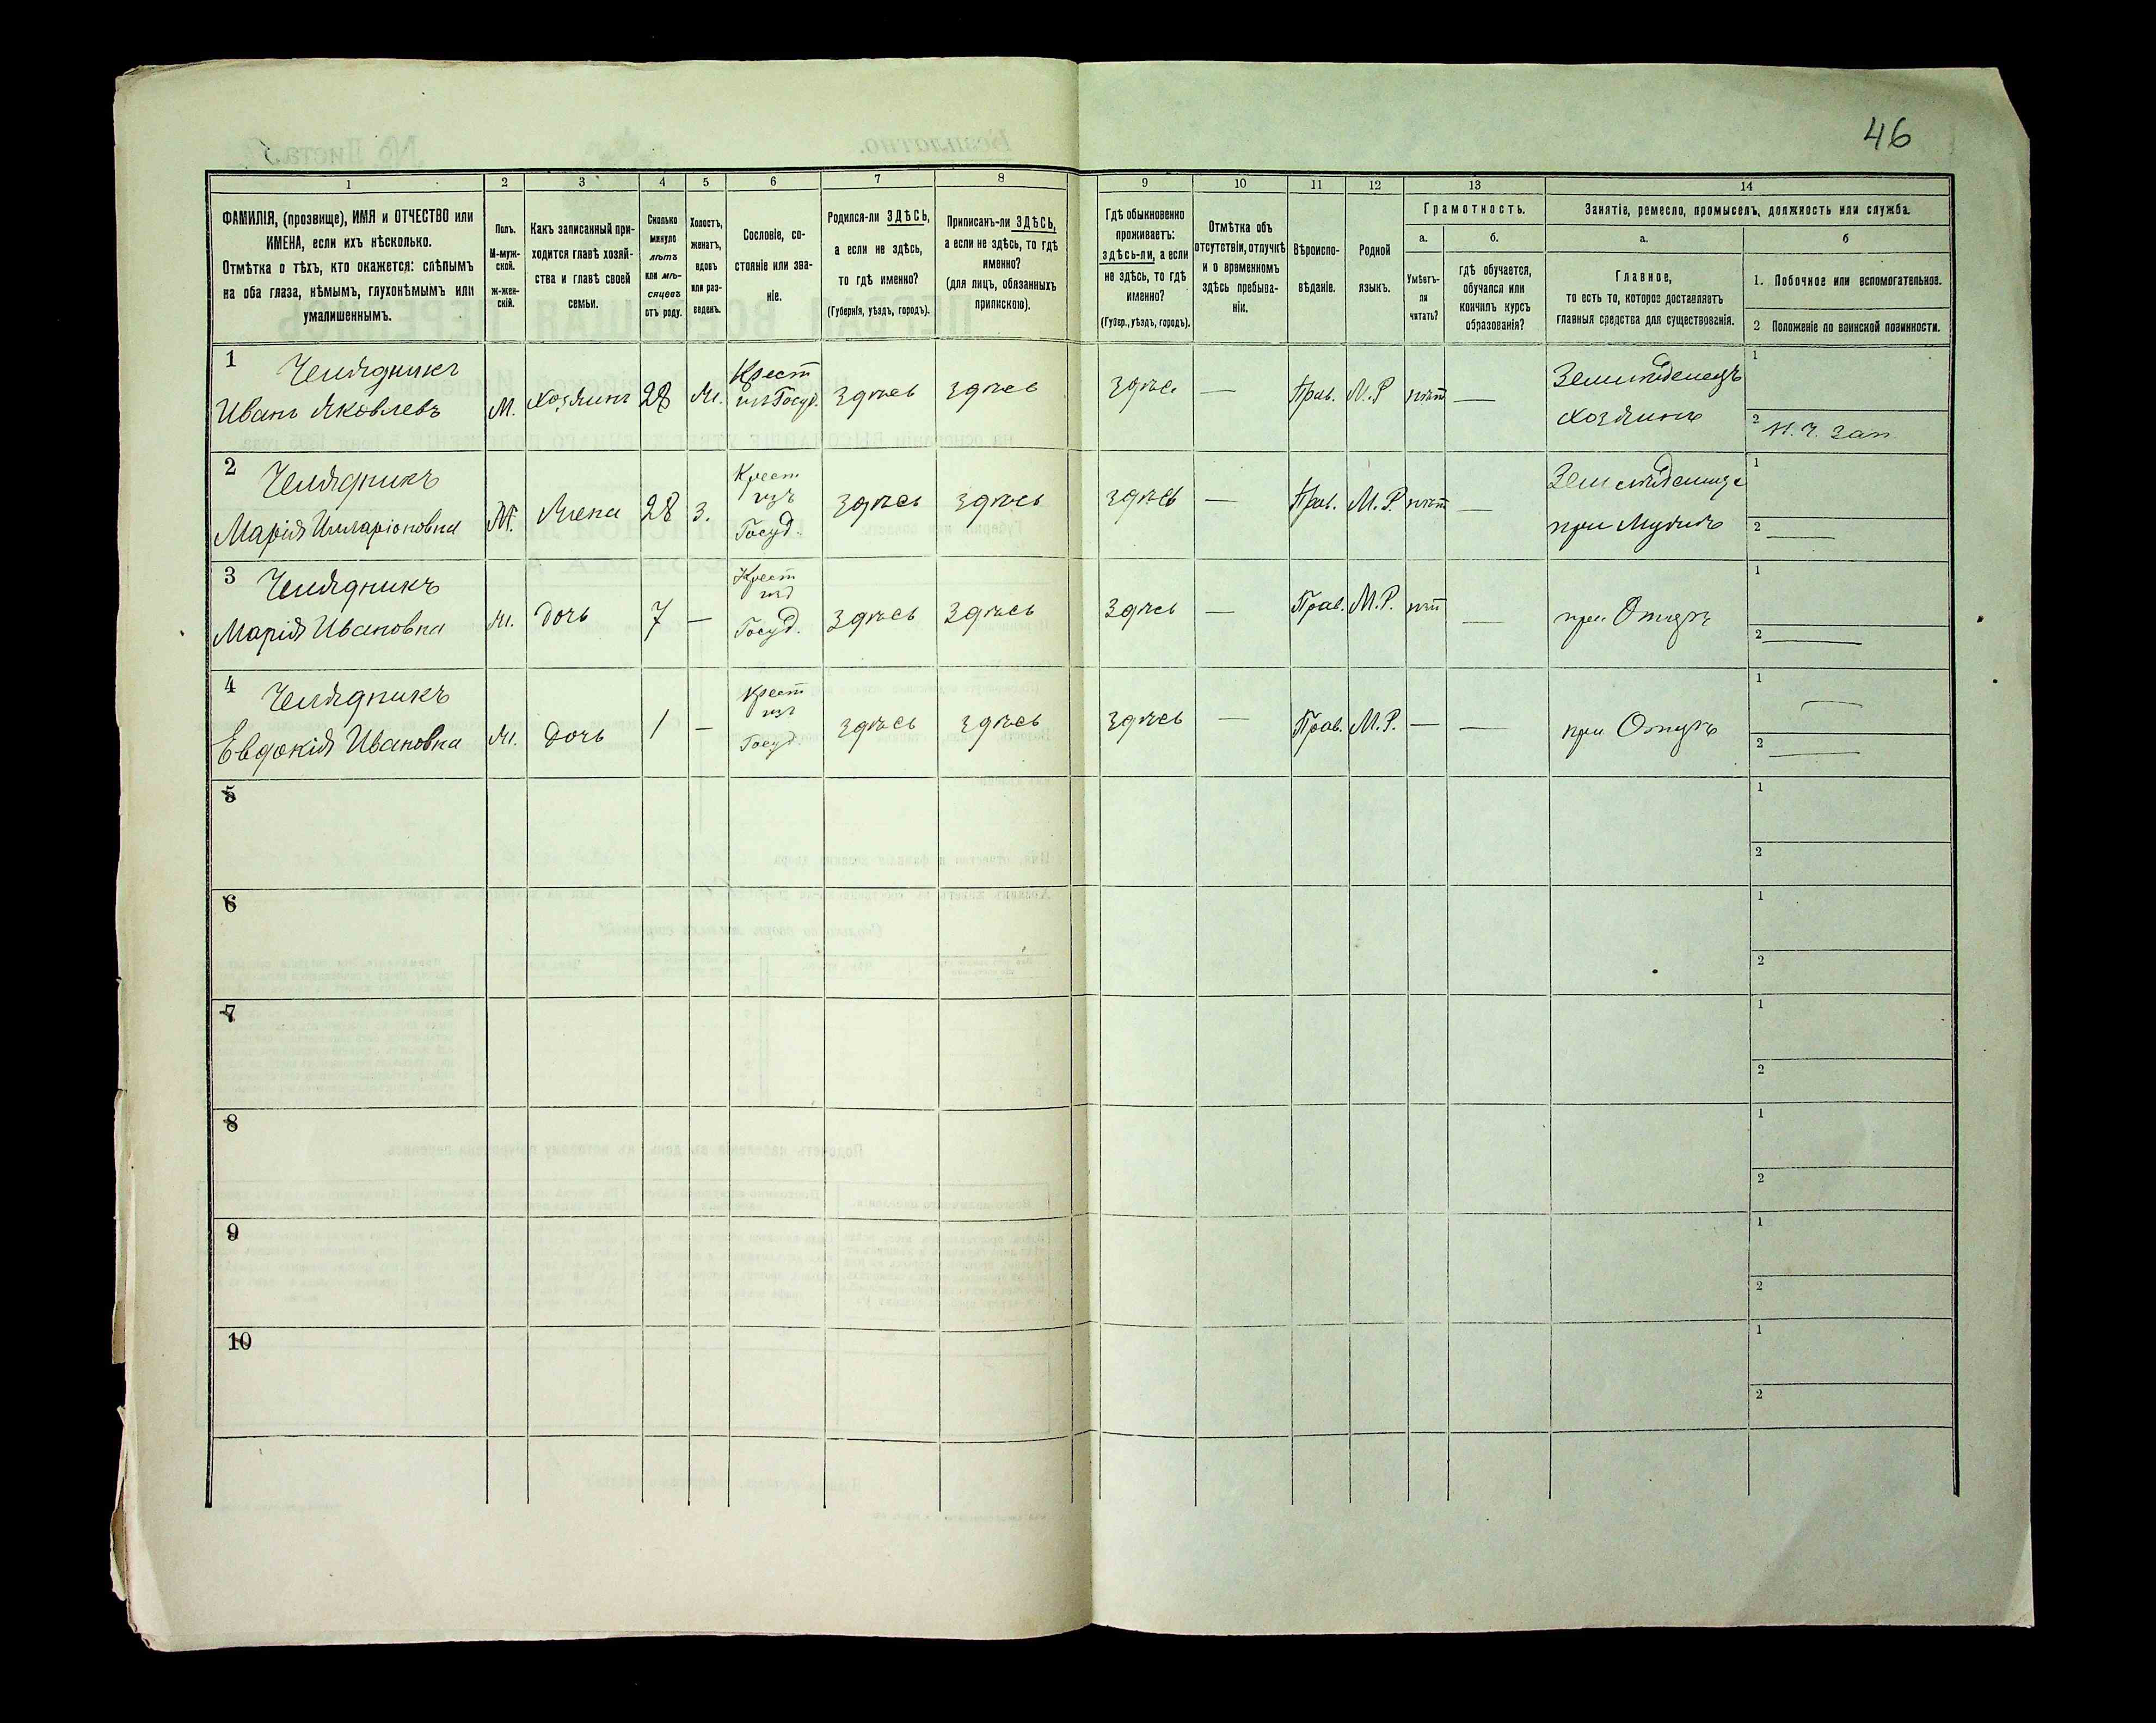 46
1 2 3 4 5 6 7 8 9 10 11 12 13 14
ФАМИЛІЯ, (прозвище), ИМЯ и ОТЧЕСТВО или
ИМЕНА, если ихъ нѣсколько.
Отмѣтка о тѣхъ, кто окажется: слѣпымъ
на оба глаза, нѣмымъ, глухонѣмымъ или
умалишеннымъ.
Полъ.
М-муж-
ской.
Ж-жен-
скій.
Какъ записанный при-
ходится главѣ хозяй-
ства и главѣ своей
семьи.
Сколько
минуло
лѣтъ
или мѣ-
сяцевъ
отъ роду.
Холостъ,
женатъ,
вдовъ
или раз-
веденъ.
Сословіе, со-
стояніе или зва-
ніе.
Родился-ли ЗДѢСЬ,
а если не здѣсь,
то гдѣ именно?
(Губернія, уѣздъ, городъ).
Приписанъ-ли ЗДѢСЬ,
а если не здѣсь, то гдѣ
именно?
(для лицъ, обязанныхъ
припискою).
Гдѣ обыкновенно
проживаетъ:
здѣсь-ли, а если
не здѣсь, то гдѣ
именно?
(Губер., уѣздъ, городъ).
Отмѣтка объ
отсутствіи, отлучкѣ
и о временномъ
здѣсь пребыва-
ніи.
Вѣроиспо-
вѣданіе.
Родной
языкъ.
Грамотность.
а.
Умѣетъ-
ли
читать?
б.
гдѣ обучается,
обучался или
кончилъ курсъ
образованія?
Занятіе, ремесло, промыселъ, должность или служба.
а.
Главное,
то есть то, которое доставляетъ
главныя средства для существованія.
б
1. Побочное или вспомогательное.
2 Положеніе по воинской повинности.
1 Челядникъ
Иванъ Яковлевъ М. хозяинъ 28 Ж. Крест изъ Госуд. здѣсь здѣсь здѣс. — Прав. М.Р нѣт — Землѣделецъ хозяинъ 1
2 Н. Ч. зап
2 Челядникъ
Марія Илларіоновна Ж. Жена 28 З. Крест изъ Госуд. здѣсь здѣсь здѣсь — Прав. М.Р. нѣт — при Мужѣ 1
2 —
3 Челядникъ
Марія Ивановна Ж. дочь 7 — Крест изъ Госуд. здѣсь здѣсь здѣсь — Прав. М.Р. нѣт — при Отцѣ 1
2 —
4 Челядникъ
Евдокія Ивановна Ж. дочь 1 — Крест изъ Госуд. здѣсь здѣсь здѣсь — Прав. М.Р. — — при Отцѣ 1 —
2 —
5 1
2
6 1
2
7 1
2
8 1
2
9 1
2
10 1
2